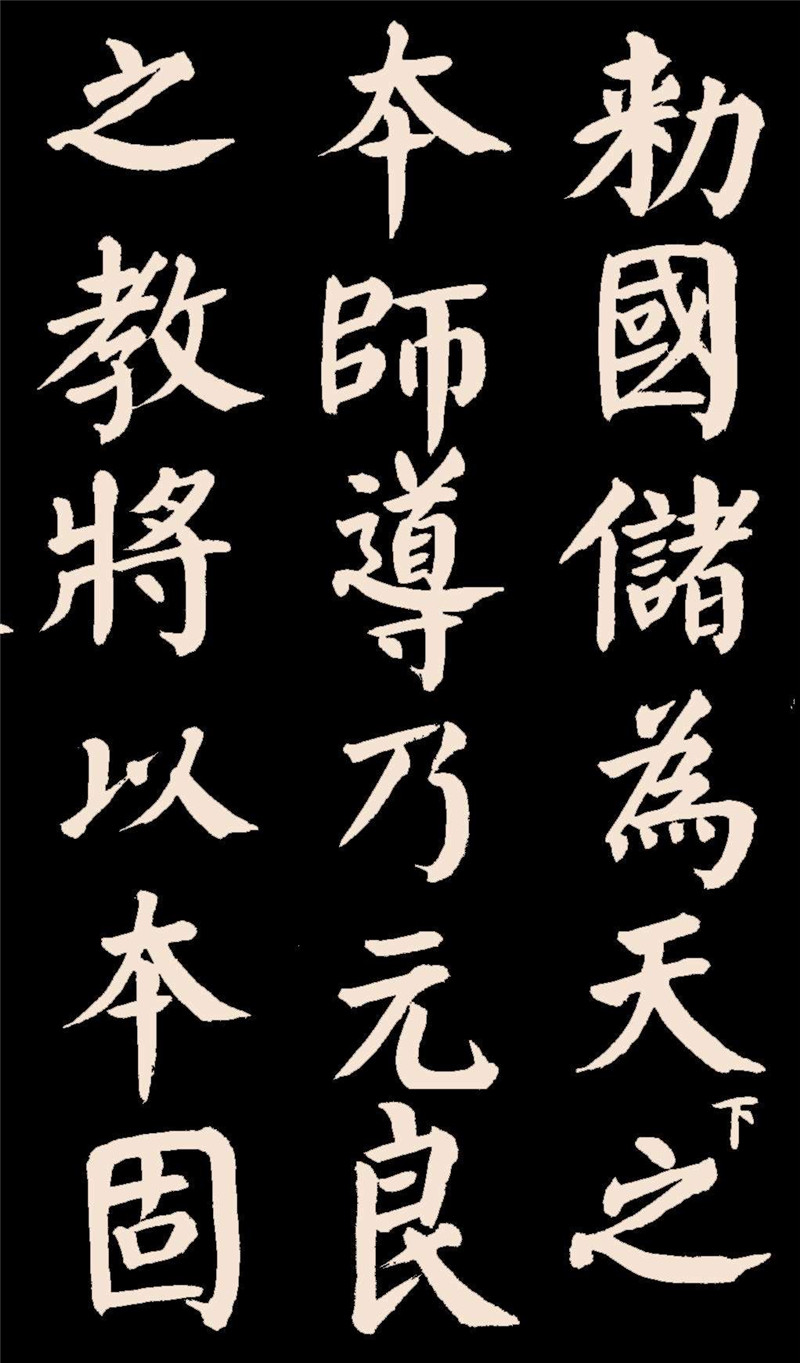 勅國儲為天下之
本師導乃元良
之教將以本固